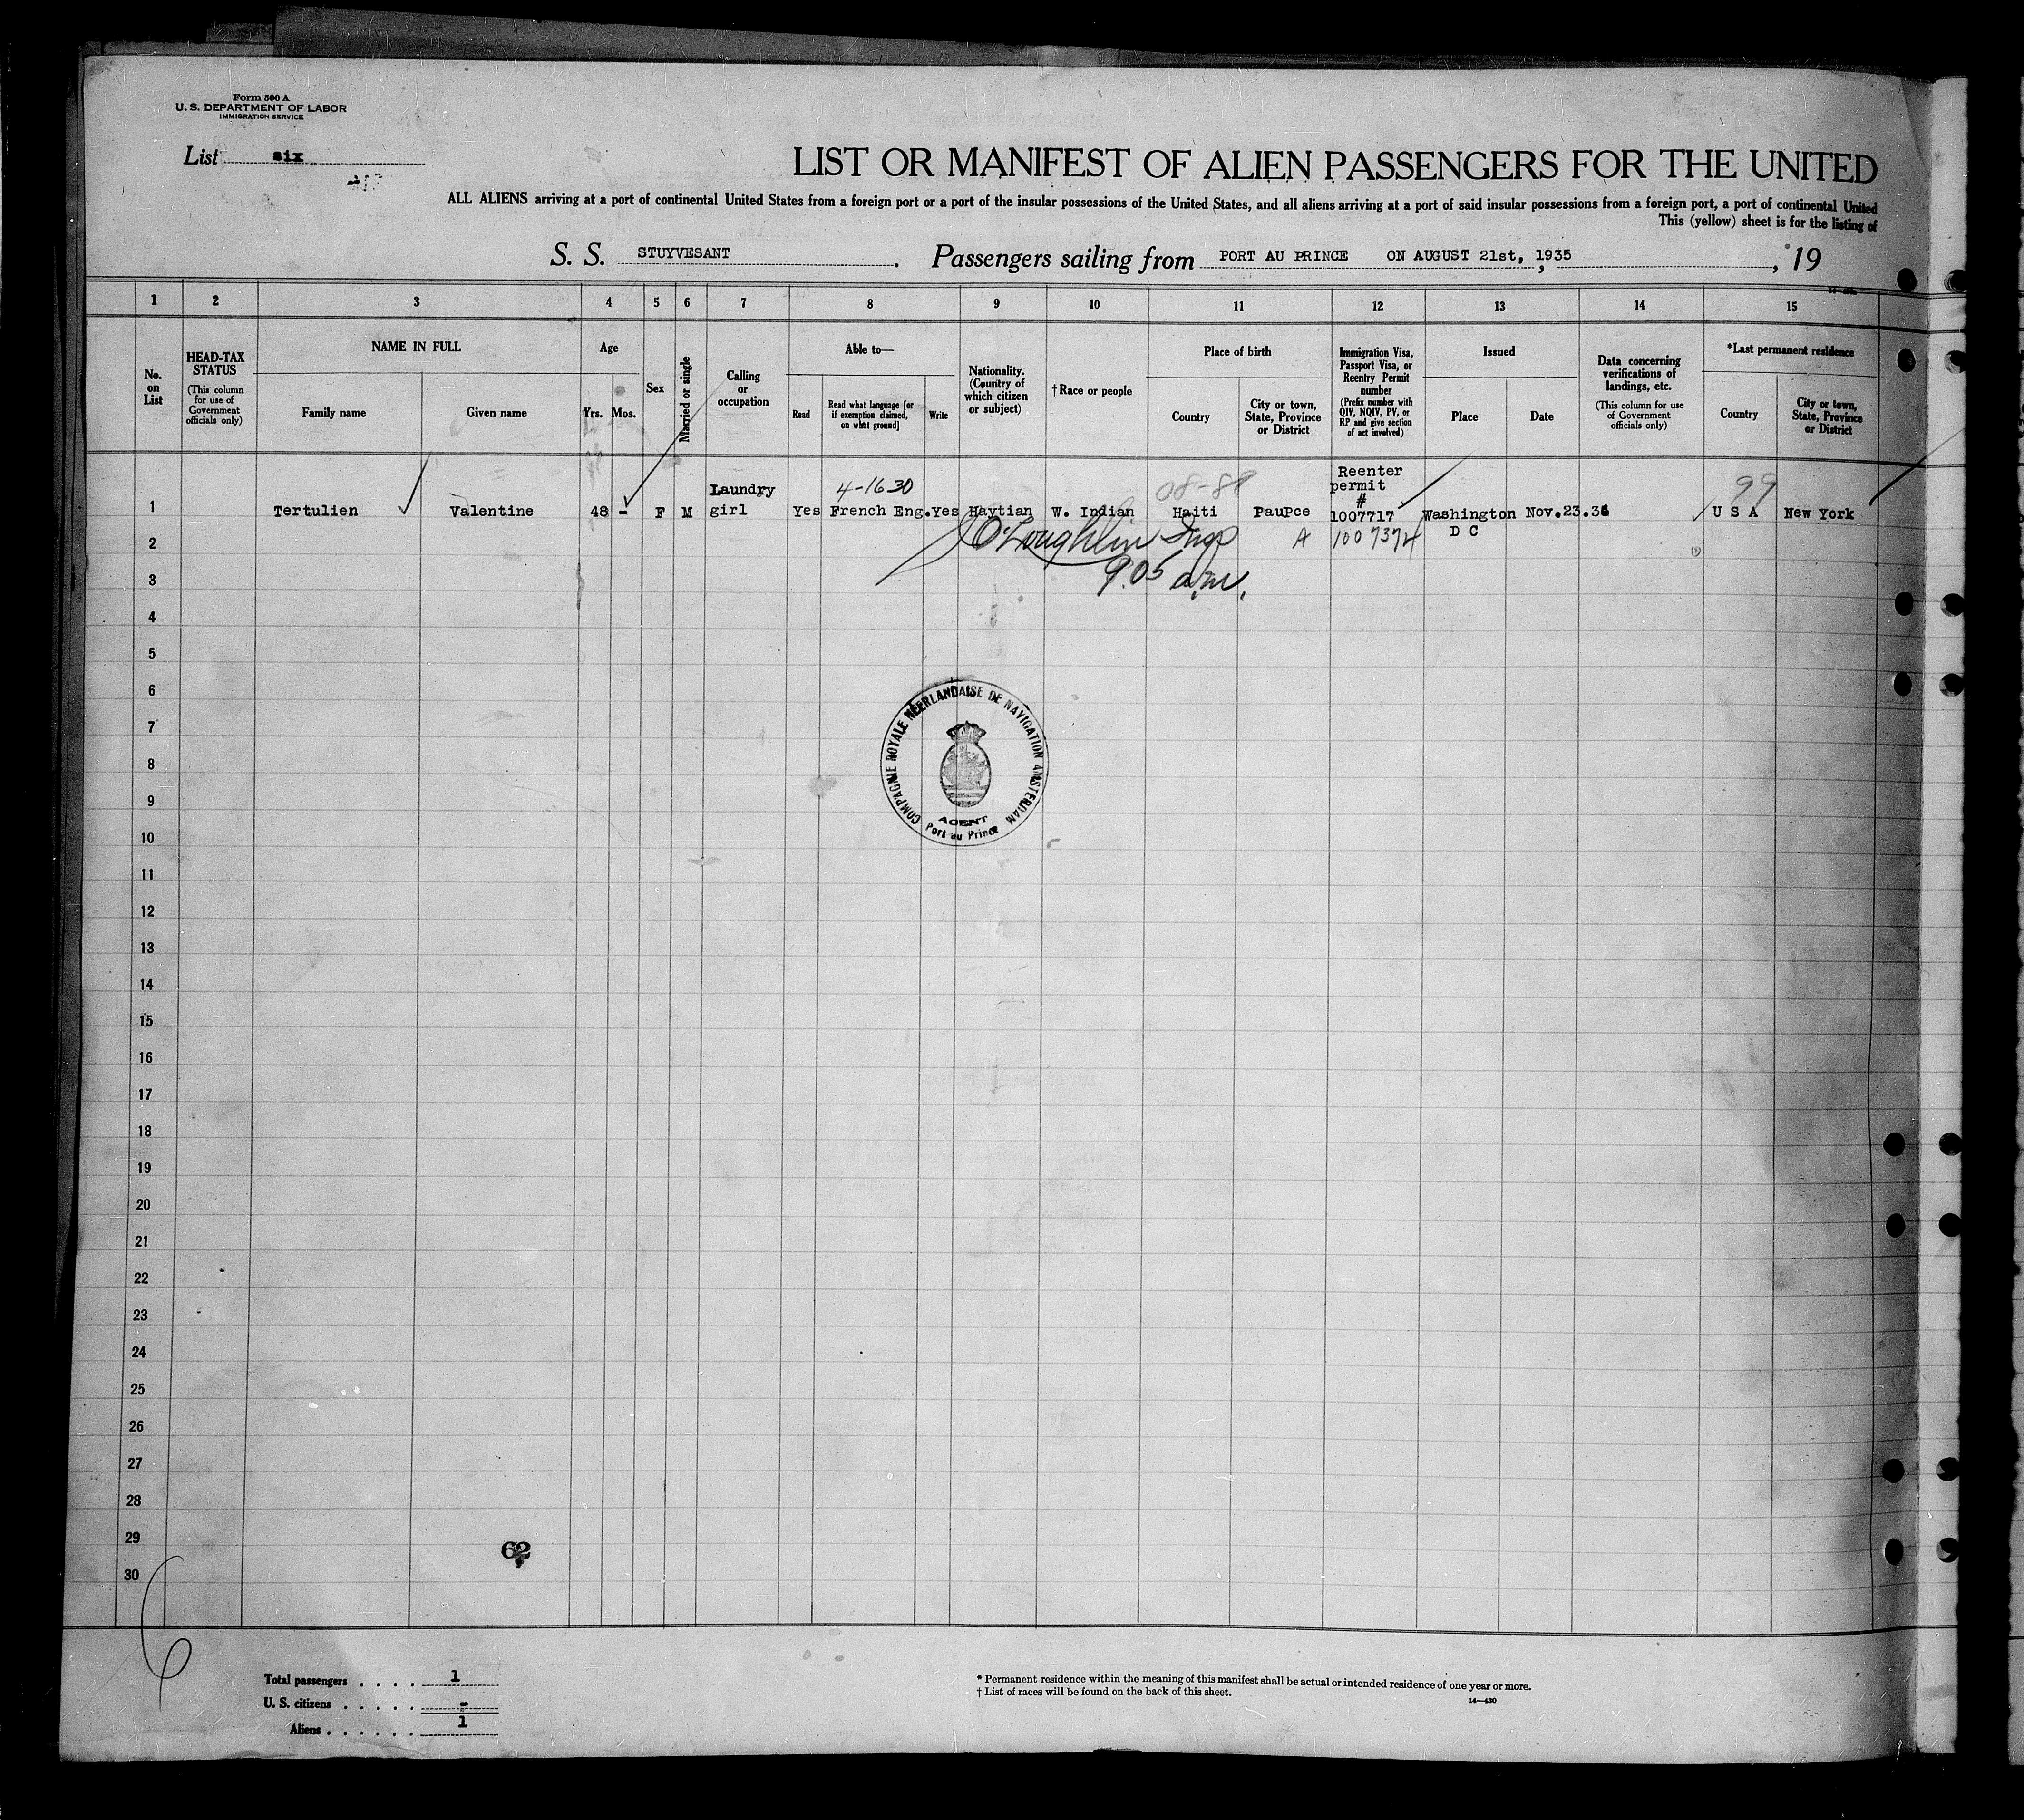 Form 500 A
U. S. DEPARTMENT OF LABOR
IMMIGRATION SERVICE
List six
LIST OR MANIFEST OF ALIEN PASSENGERS FOR THE UNITED
ALL ALIENS arriving at a port of continental United States from a foreign port or a port of the insular possessions of the United States, and all aliens arriving at a port of said insular possessions from a foreign port, a port of continental United
This (yellow) sheet is for the listing of
S. S. STUYVESANT. Passengers sailing from PORT AU PRINCE ON AUGUST 21st, 1935, 19
1 2 3 4 5 6 7 8 9 10 11 12 13 14 15
No. on List
HEAD-TAX STATUS
(This column for use of Government officials only)
NAME IN FULL
Family name
Given name
Age
Yrs. Mos.
Sex
Married or single
Calling or occupation
Able to—
Read
Read what language [or if exemption claimed, on what ground]
Write
Nationality. (Country of which citizen or subject)
†Race or people
Place of birth
Country
City or town, State, Province or District
Immigration Visa, Passport Visa, or Reentry Permit number
(Prefix number with QIV, NQIV, PV, or RP and give section of act involved)
Issued
Place
Date
Data concerning verifications of landings, etc.
(This column for use of Government officials only)
*Last permanent residence
Country
City or town, State, Province or District
Reenter
permit
#
Laundry 4-16 30 08-88 99
1 Tertulien Valentine 48 - F M girl Yes French Eng. Yes Haytian W. Indian Haiti PauPce 1007717 Washington Nov.23.34 U S A New York
D C
2 O'Loughlin Insp A 1007374
3 9.05 a.m.
4
5
6
7
8
9
10
11
12
13
14
15
16
17
18
19
20
21
22
23
24
25
26
27
28
29
30
COMPAGNIE ROYALE NÉERLANDAISE DE NAVIGATION AMSTERDAM
AGENT
Port au Prince
62
6
Total passengers . . . . 1
U. S. citizens . . . . . -
Aliens . . . . . . 1
* Permanent residence within the meaning of this manifest shall be actual or intended residence of one year or more.
† List of races will be found on the back of this sheet.
14—430